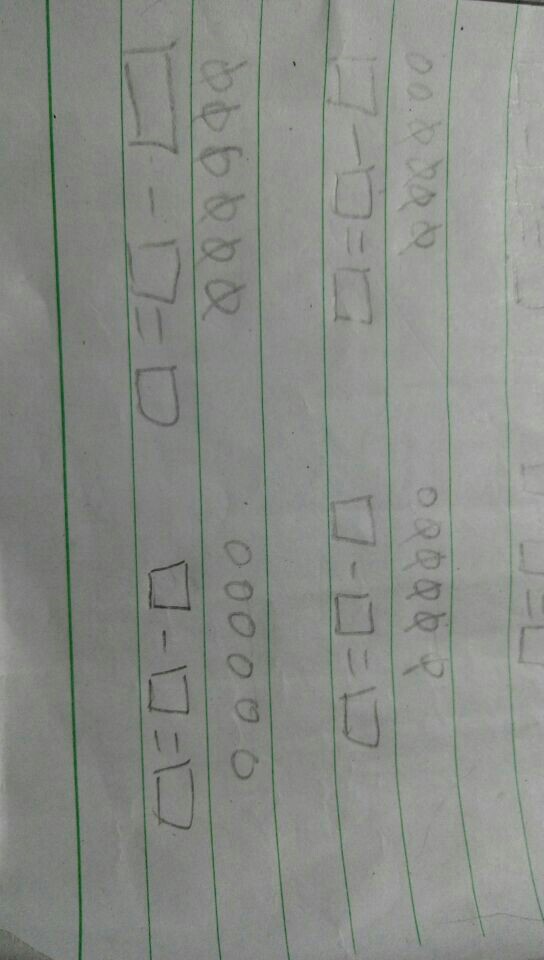 ○○⊘⊘⊘⊘ ○⊘⊘⊘⊘⊘
□-□=□ □-□=□
⊘⊘⊘⊘⊘⊘ ○○○○○○
□-□=□ □-□=□